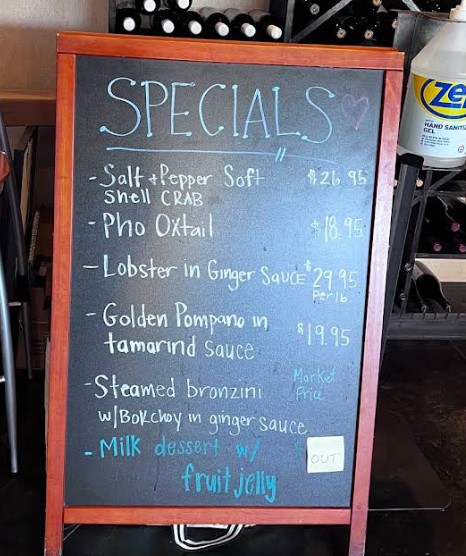 SPECIALS
- Salt + Pepper Soft $26.95
Shell CRAB
- Pho Oxtail $18.95
- Lobster in Ginger Sauce $29.95
Per lb
- Golden Pompano in $19.95
tamarind sauce
- Steamed bronzini Market Price
w/Bokchoy in ginger sauce
- Milk dessert w/ OUT
fruit jelly
Zep
HAND SANITIZER
GEL